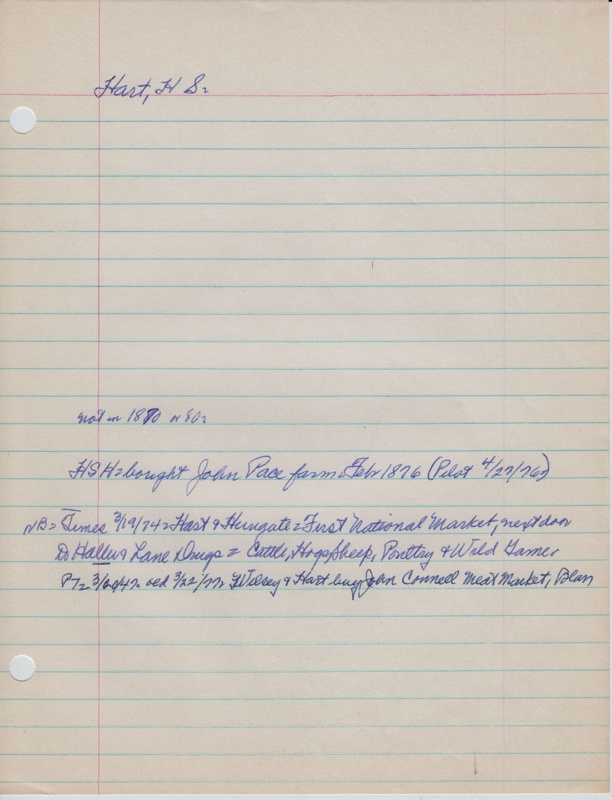 Hart, H S.
not in 1870 or 80.
HSH = bought John Pace farm Feb 1876 (Pilot 4/27/76)
NB = Times 3/19/74 = Hart & Hungate = First National Market, next door
to Haller & Lane Drugs = Cattle, Hogs, Sheep, Poultry & Wild Game
3/22/77 & Hart buy John Connell Meat Market, Blan